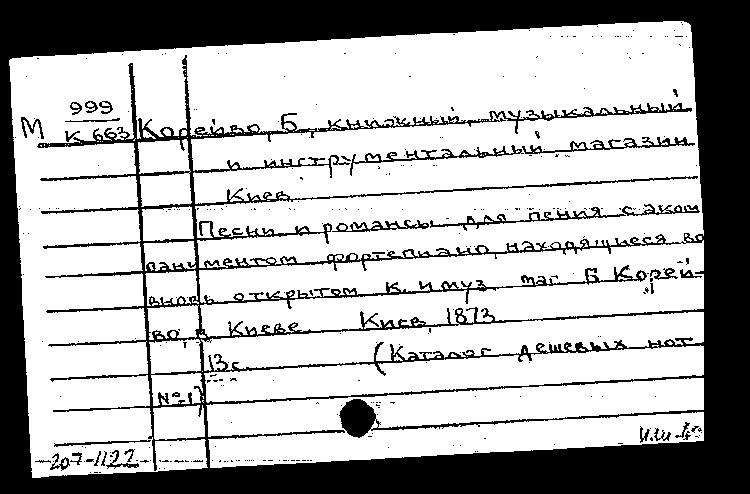 999
М К 663 Корейво, Б, книжный, музыкальный
и инструментальный магазин
Киев.
Песни и романсы для пения с аком
паниментом фортепиано, находящиеся во
вновь открытом к. и муз. маг. Б Корей-
во, в Киеве. Киев, 1873.
13с. (Каталог дешевых нот
№1)
207-1122